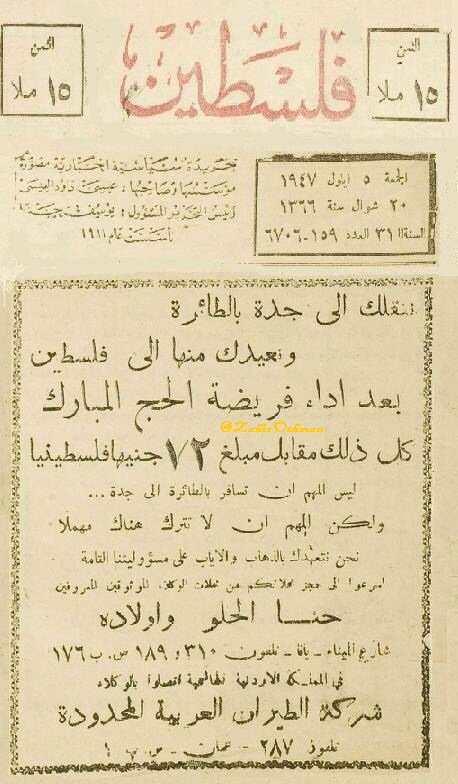 الثمن
١٥ ملا
فلسطين
الثمن
١٥ ملا
جريدة سياسية اخبارية مصورة
مؤسسها وصاحبها: عيسى داود العيسى
رئيس التحرير المسؤول: يوسف حنا
تأسست عام ١٩١١
الجمعة ٥ ايلول ١٩٤٧
٢٠ شوال سنة ١٣٦٦
السنة ٣١ العدد ١٥٩-٦٧٠٦
ننقلك الى جدة بالطائرة
ونعيدك منها الى فلسطين
بعد اداء فريضة الحج المبارك
@ZahirOthman
كل ذلك مقابل مبلغ ٧٢ جنيها فلسطينيا
ليس المهم ان تسافر بالطائرة الى جدة ...
ولكن المهم ان لا تترك هناك مهملا
نحن نتعهدك بالذهاب والاياب على مسؤوليتنا التامة
اسرعوا الى حجز محلاتكم من محلات الوكلاء الموثوقين المعروفين
حنا الحلو واولاده
شارع الميناء - يافا - تلفون ٣١٠ و ١٨٩ ص.ب ١٧٦
في المملكة الاردنية الهاشمية اتصلوا بالوكلاء
شركة الطيران العربية المحدودة
تلفون ٢٨٧ - عمان - ص ب